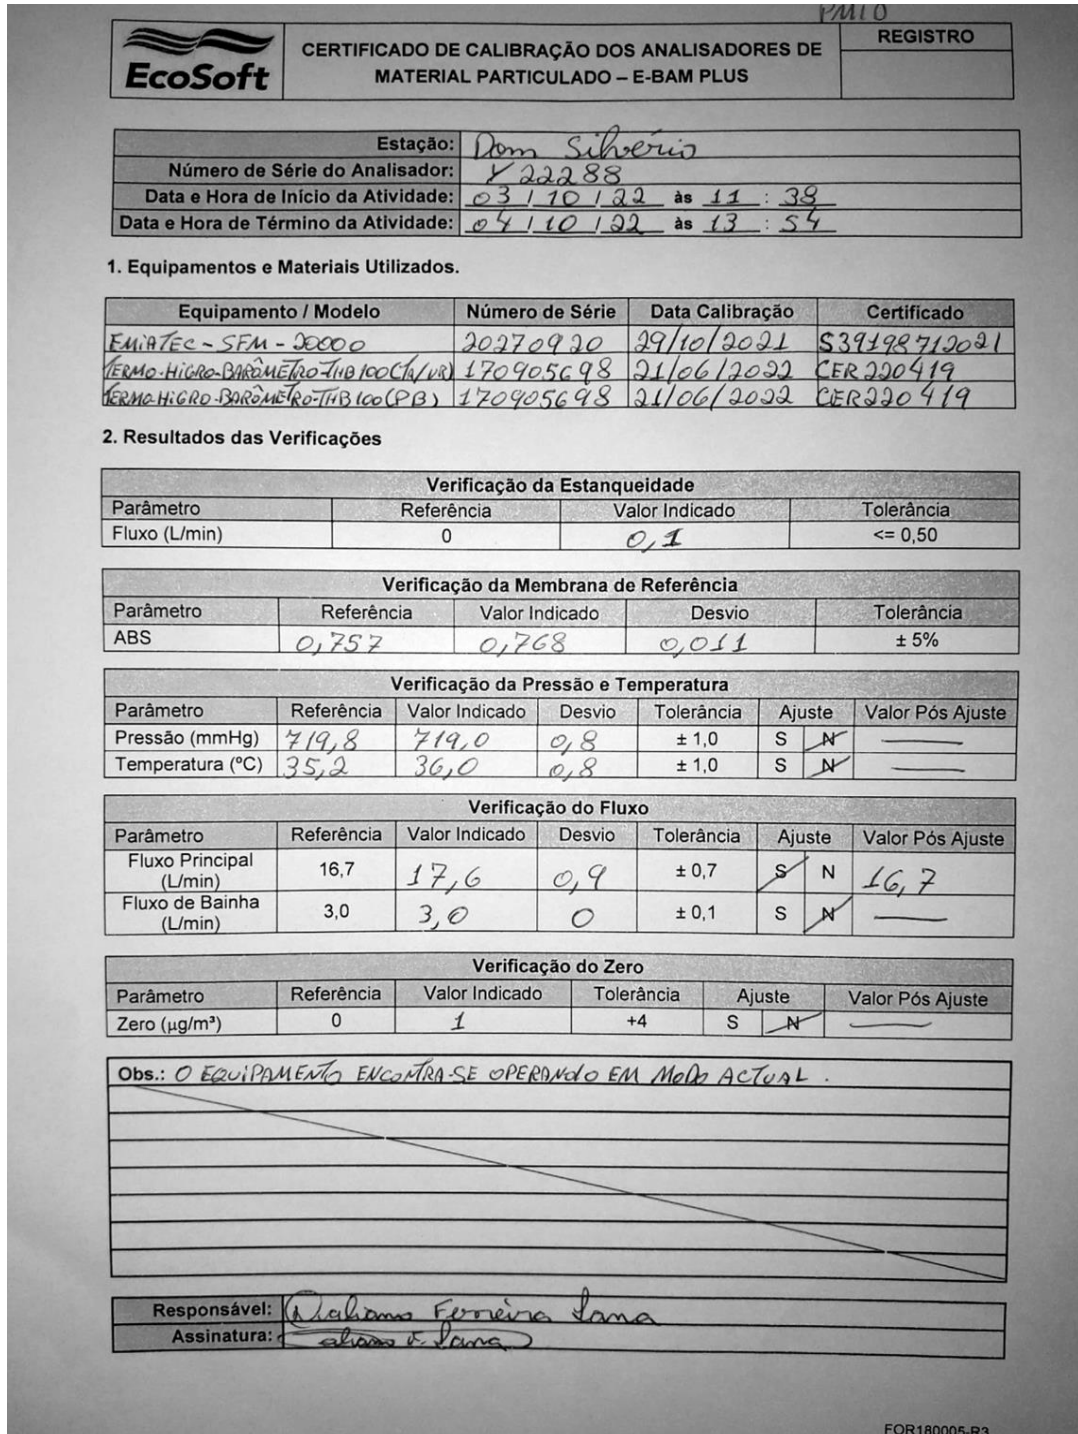 PM10
EcoSoft
CERTIFICADO DE CALIBRAÇÃO DOS ANALISADORES DE
MATERIAL PARTICULADO – E-BAM PLUS
REGISTRO
Estação: Dom Silvério
Número de Série do Analisador: Y22288
Data e Hora de Início da Atividade: 03/10/22 às 11:38
Data e Hora de Término da Atividade: 04/10/22 às 13:54
1. Equipamentos e Materiais Utilizados.
Equipamento / Modelo Número de Série Data Calibração Certificado
EMIATEC - SFM - 20000 20270920 29/10/2021 S39198712021
TERMO-HIGRO-BARÔMETRO-THB100(TA/UR) 170905698 21/06/2022 CER220419
TERMO-HIGRO-BARÔMETRO-THB100(PB) 170905698 21/06/2022 CER220419
2. Resultados das Verificações
Verificação da Estanqueidade
Parâmetro Referência Valor Indicado Tolerância
Fluxo (L/min) 0 0,1 <= 0,50
Verificação da Membrana de Referência
Parâmetro Referência Valor Indicado Desvio Tolerância
ABS 0,757 0,768 0,011 ± 5%
Verificação da Pressão e Temperatura
Parâmetro Referência Valor Indicado Desvio Tolerância Ajuste Valor Pós Ajuste
Pressão (mmHg) 719,8 719,0 0,8 ± 1,0 S N
Temperatura (ºC) 35,2 36,0 0,8 ± 1,0 S N
Verificação do Fluxo
Parâmetro Referência Valor Indicado Desvio Tolerância Ajuste Valor Pós Ajuste
Fluxo Principal
(L/min) 16,7 17,6 0,9 ± 0,7 S N 16,7
Fluxo de Bainha
(L/min) 3,0 3,0 0 ± 0,1 S N
Verificação do Zero
Parâmetro Referência Valor Indicado Tolerância Ajuste Valor Pós Ajuste
Zero (µg/m³) 0 1 +4 S N
Obs.: O EQUIPAMENTO ENCONTRA-SE OPERANDO EM MODO ACTUAL.
Responsável: Ferreira Lana
Assinatura: Lana
FOR180005-R3